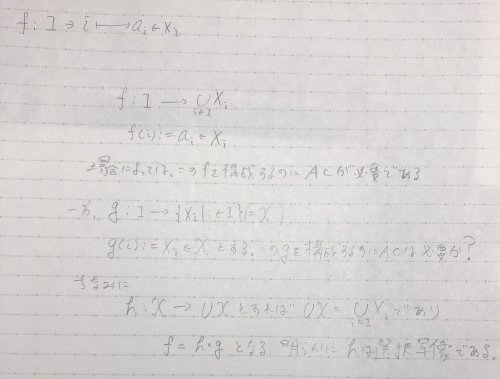 f : I ∋ i ⟼ a_i ∈ X_i
f : I → ∪_{i∈I} X_i
f(i) := a_i ∈ X_i
場合によっては、このfを構成するのにACが必要である
一方、g : I → {X_i | i∈I} (=X)
g(i) := X_i ∈ X とする。このgを構成するのにACは必要か?
ちなみに
h : X → ∪X とすれば ∪X = ∪_{i∈I} X_i であり
f = h∘g となる。明らかに hは選択写像である。